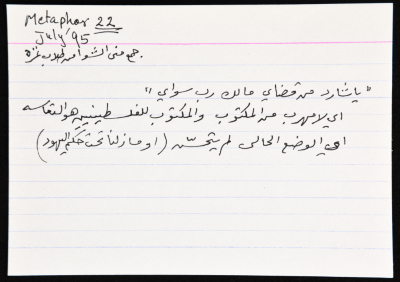 Metaphor 22
July/95
جمع منى الشوا من طلاب غزة.
"يا شارد من قضاي مالك رب سواي"
اي لا مهرب من المكتوب والمكتوب للفلسطينيين هو التعاسه
اي الوضع الحالي لم يتحسّن (او ما زلنا تحت حكم اليهود)